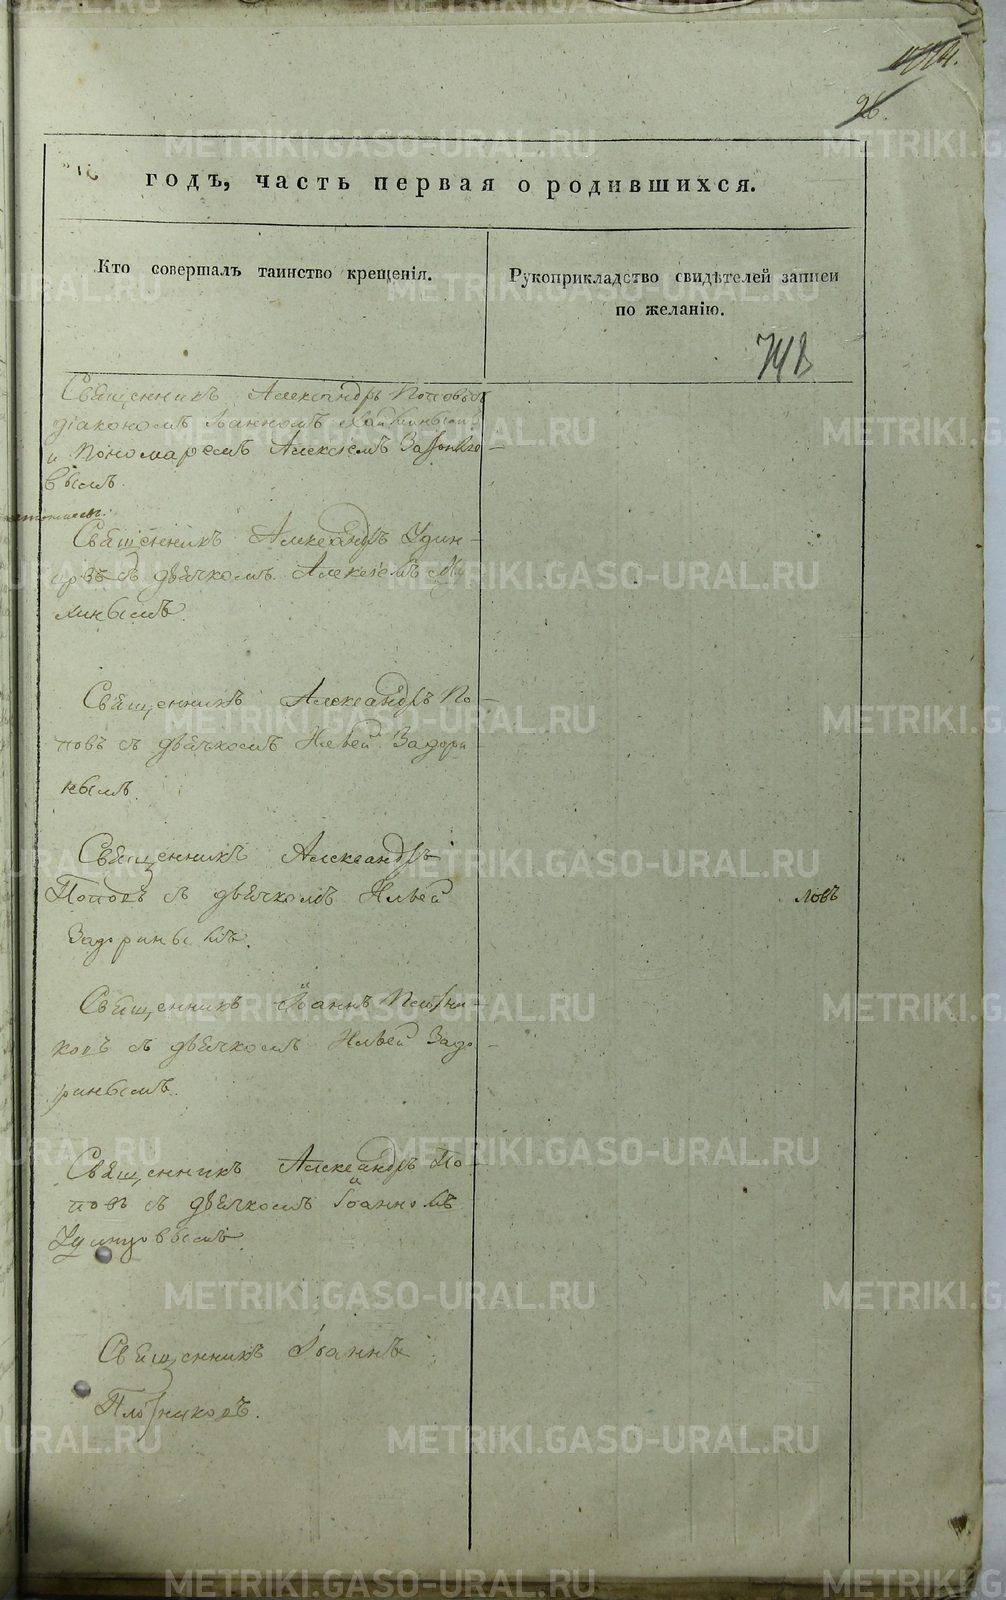 26.
годъ, часть первая о родившихся.
Кто совершалъ таинство крещенія.
Рукоприкладство свидѣтелей записи
по желанію.
Священникъ Александръ Поповъ съ
діакономъ Іоанномъ
и Пономаремъ Алексіемъ
вымъ.
Священникъ Александръ Удин-
цовъ съ дьячкомъ Алексіемъ Ми-
линымъ.
Священникъ Александръ По-
повъ съ дьячкомъ Ильей Задори-
нымъ.
Священникъ Александръ
Поповъ съ дьячкомъ Ильей
Задоринымъ.
ловъ
Священникъ Іоаннъ Плотни-
ковъ съ дьячкомъ Ильей Задо-
ринымъ.
Священникъ Александръ По-
повъ съ дьячкомъ Іоанномъ
Удинцовымъ
Священникъ Іоаннъ
Плотниковъ.
METRIKI.GASO-URAL.RU